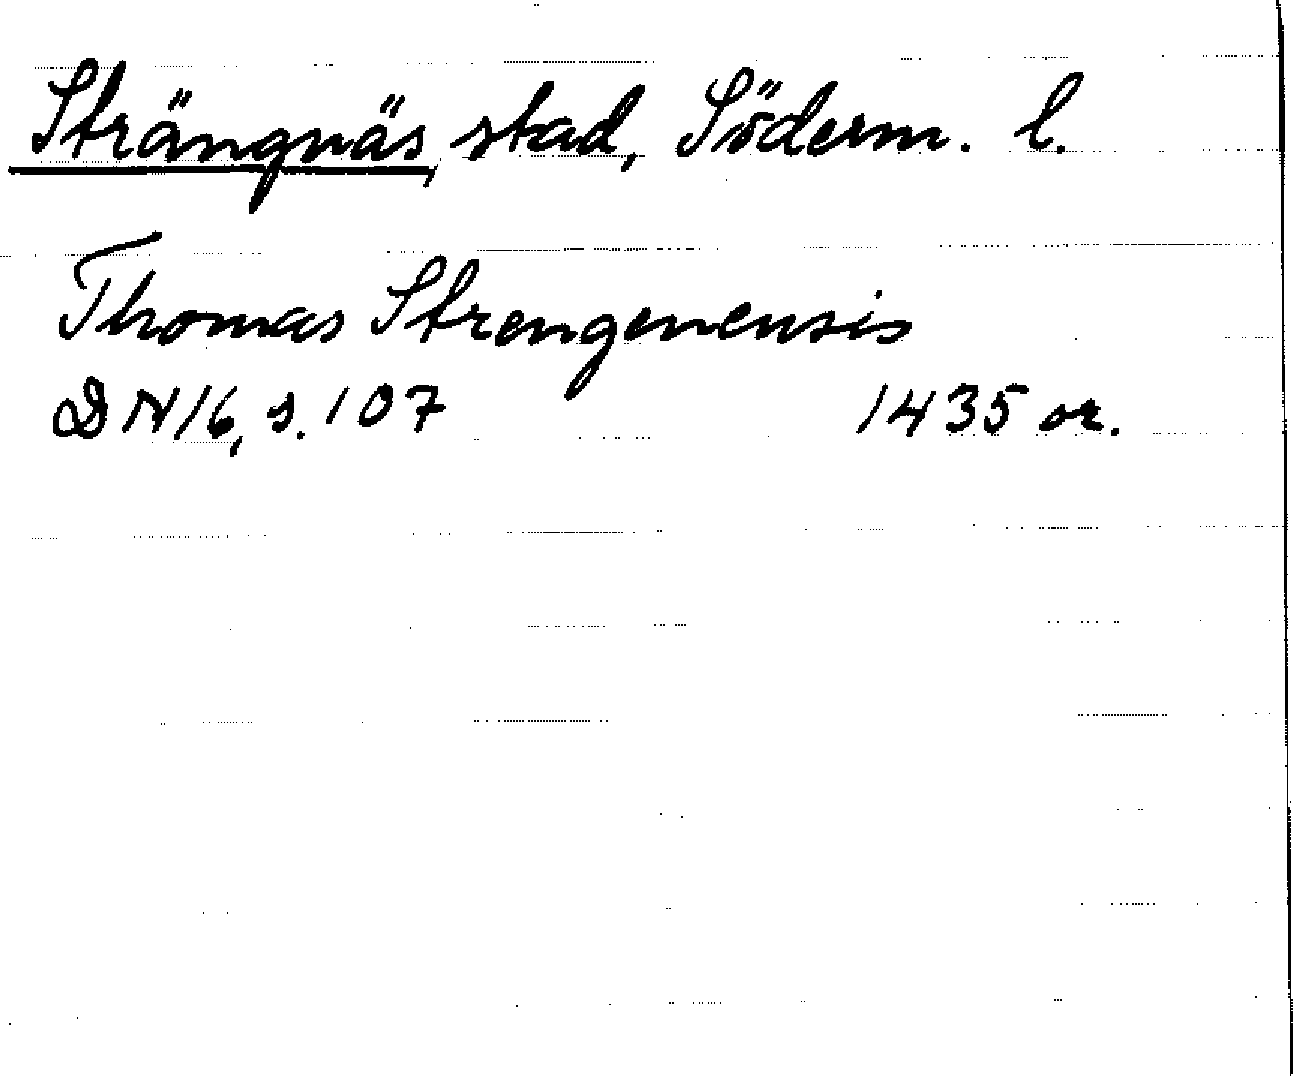 Strängnäs, stad, Söderm. l.
Thomas Strengenensis
DN 16, s. 107 1435 or.